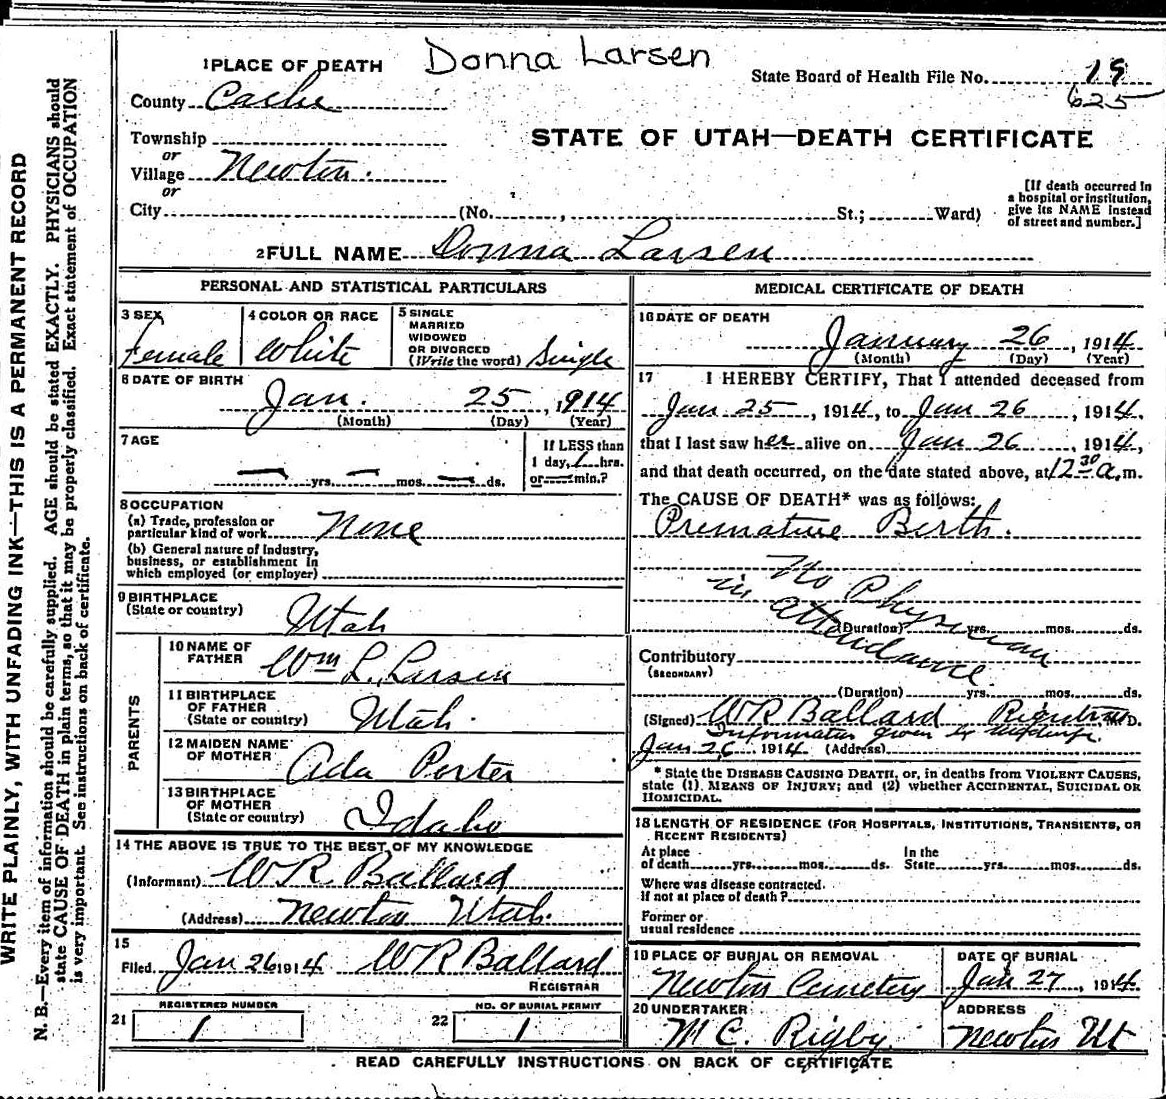 Donna Larsen
1 PLACE OF DEATH
State Board of Health File No. 19
625
County Cache
STATE OF UTAH—DEATH CERTIFICATE
Township
or
Village Newton.
or
City (No. , St.; Ward)
[If death occurred in
a hospital or institution,
give its NAME instead
of street and number.]
2 FULL NAME Donna Larsen
PERSONAL AND STATISTICAL PARTICULARS
3 SEX
Female
4 COLOR OR RACE
White
5 SINGLE
MARRIED
WIDOWED
OR DIVORCED
(Write the word) Single
6 DATE OF BIRTH
Jan. 25, 1914
(Month) (Day) (Year)
7 AGE
— yrs. — mos. — ds.
If LESS than
1 day, 1 hrs.
or — min.?
8 OCCUPATION
(a) Trade, profession or
particular kind of work None
(b) General nature of Industry,
business, or establishment in
which employed (or employer)
9 BIRTHPLACE
(State or country) Utah
PARENTS
10 NAME OF
FATHER Wm L. Larsen
11 BIRTHPLACE
OF FATHER
(State or country) Utah.
12 MAIDEN NAME
OF MOTHER Ada Porter
13 BIRTHPLACE
OF MOTHER
(State or country) Idaho
14 THE ABOVE IS TRUE TO THE BEST OF MY KNOWLEDGE
(Informant) W R Ballard
(Address) Newton Utah.
15
Filed Jan 26 1914 W R Ballard
REGISTRAR
REGISTERED NUMBER
21 1
NO. OF BURIAL PERMIT
22 1
MEDICAL CERTIFICATE OF DEATH
16 DATE OF DEATH
January 26, 1914
(Month) (Day) (Year)
17 I HEREBY CERTIFY, That I attended deceased from
Jan 25, 1914, to Jan 26, 1914.
that I last saw her alive on Jan 26, 1914,
and that death occurred, on the date stated above, at 12 30 a.m.
The CAUSE OF DEATH* was as follows:
Premature Birth.
No Physician
in attendance.
(Duration) yrs. mos. ds.
Contributory
(SECONDARY)
(Duration) yrs. mos. ds.
(Signed) W R Ballard M.D.
Information given by midwife.
Jan 26, 1914 (Address)
* State the DISEASE CAUSING DEATH, or, in deaths from VIOLENT CAUSES,
state (1) MEANS OF INJURY; and (2) whether ACCIDENTAL, SUICIDAL OR
HOMICIDAL.
18 LENGTH OF RESIDENCE (FOR HOSPITALS, INSTITUTIONS, TRANSIENTS, OR
RECENT RESIDENTS)
At place
of death yrs. mos. ds.
In the
State yrs. mos. ds.
Where was disease contracted.
If not at place of death?
Former or
usual residence
19 PLACE OF BURIAL OR REMOVAL
Newton Cemetery
DATE OF BURIAL
Jan 27, 1914.
20 UNDERTAKER
M C. Rigby.
ADDRESS
Newton Ut
READ CAREFULLY INSTRUCTIONS ON BACK OF CERTIFICATE
WRITE PLAINLY, WITH UNFADING INK—THIS IS A PERMANENT RECORD
N. B.—Every item of information should be carefully supplied. AGE should be stated EXACTLY. PHYSICIANS should
state CAUSE OF DEATH in plain terms, so that it may be properly classified. Exact statement of OCCUPATION
is very important. See instructions on back of certificate.